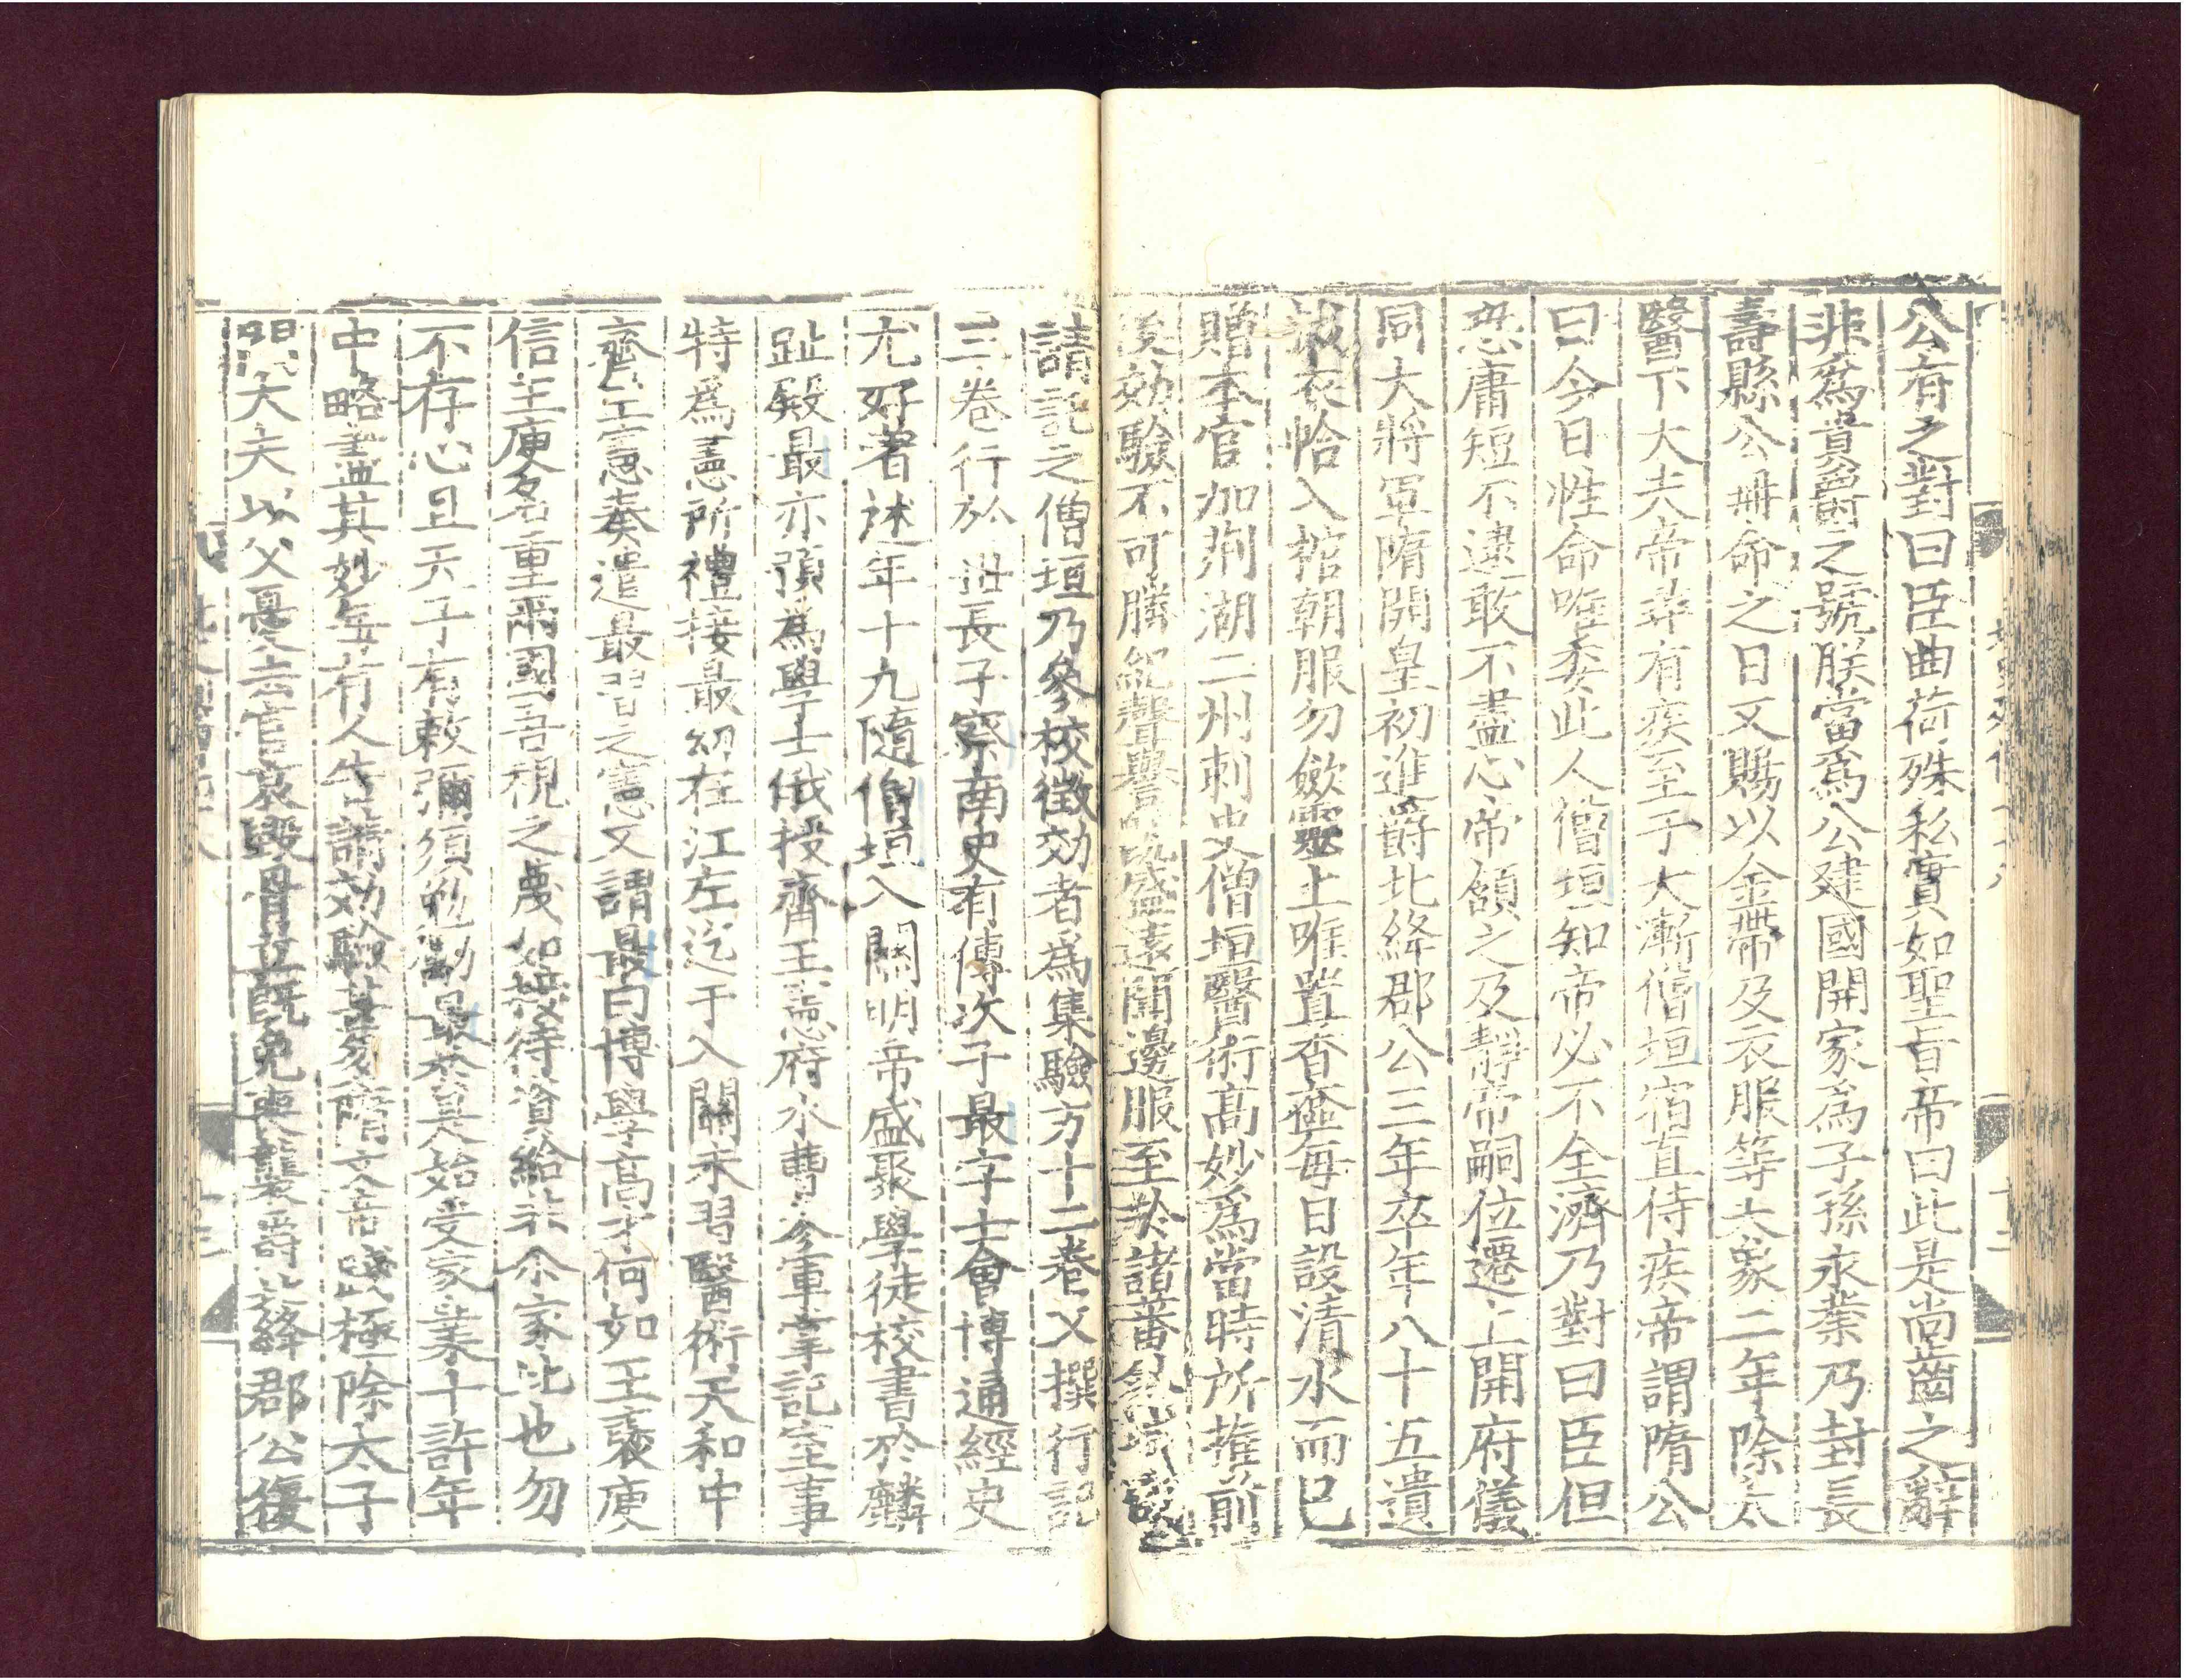 公有之對曰臣曲荷殊私實如聖旨帝曰此是尚齒之辭
非爲貴爵之號朕當爲公建國開家爲子孫永業乃封長
壽縣公冊命之日又賜以金帶及衣服等大象二年除太
醫下大夫帝尋有疾至于大漸僧垣宿直侍疾帝謂隋公
曰今日性命唯委此人僧垣知帝必不全濟乃對曰臣但
恐庸短不逮敢不盡心帝頷之及靜帝嗣位遷上開府儀
同大將軍隋開皇初進爵北絳郡公三年卒年八十五遺
誡衣帢入棺朝服勿斂靈上唯置香奩每日設清水而已
贈本官加荊湖二州刺史僧垣醫術高妙爲當時所推前
後効驗不可勝紀聲譽盛遠聞邊服至於諸蕃外域
請託之僧垣乃參校徵効者爲集驗方十二卷又撰行記
三卷行於世長子察南史有傳次子最字士會博通經史
尤好著述年十九隨僧垣入關明帝盛聚學徒校書於麟
趾殿最亦預爲學士俄授齊王憲府水曹參軍掌記室事
特爲憲所禮接最幼在江左迄于入關未習醫術天和中
齊王憲奏遣最習之憲又謂最曰博學高才何如王褒庾
信王庾名重兩國吾視之蔑如接待資給非尒家比也勿
不存心且天子有敕彌須勉勵最於是始受家業十許年
中略盡其妙每有人告請効驗甚多隋文帝踐極除太子
門大夫以父憂去官哀毀骨立既免喪襲爵北絳郡公復